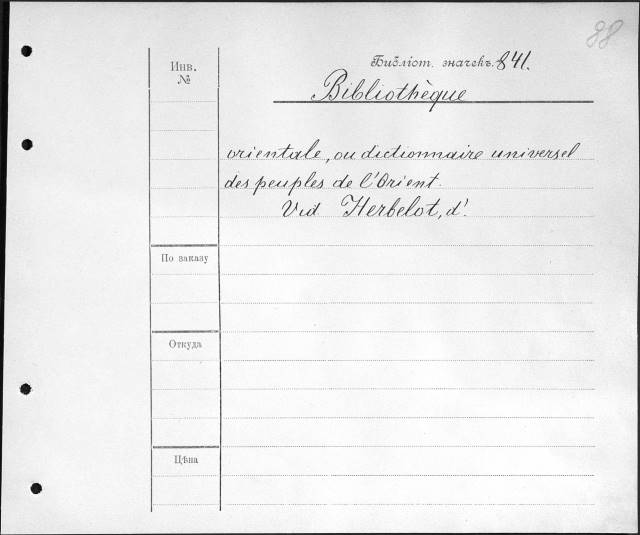 88
Инв.
№
Библіот. значекъ. 841.
Bibliothèque
orientale, ou dictionnaire universel
des peuples de l'Orient.
Vid Herbelot, d'.
По заказу
Откуда
Цѣна